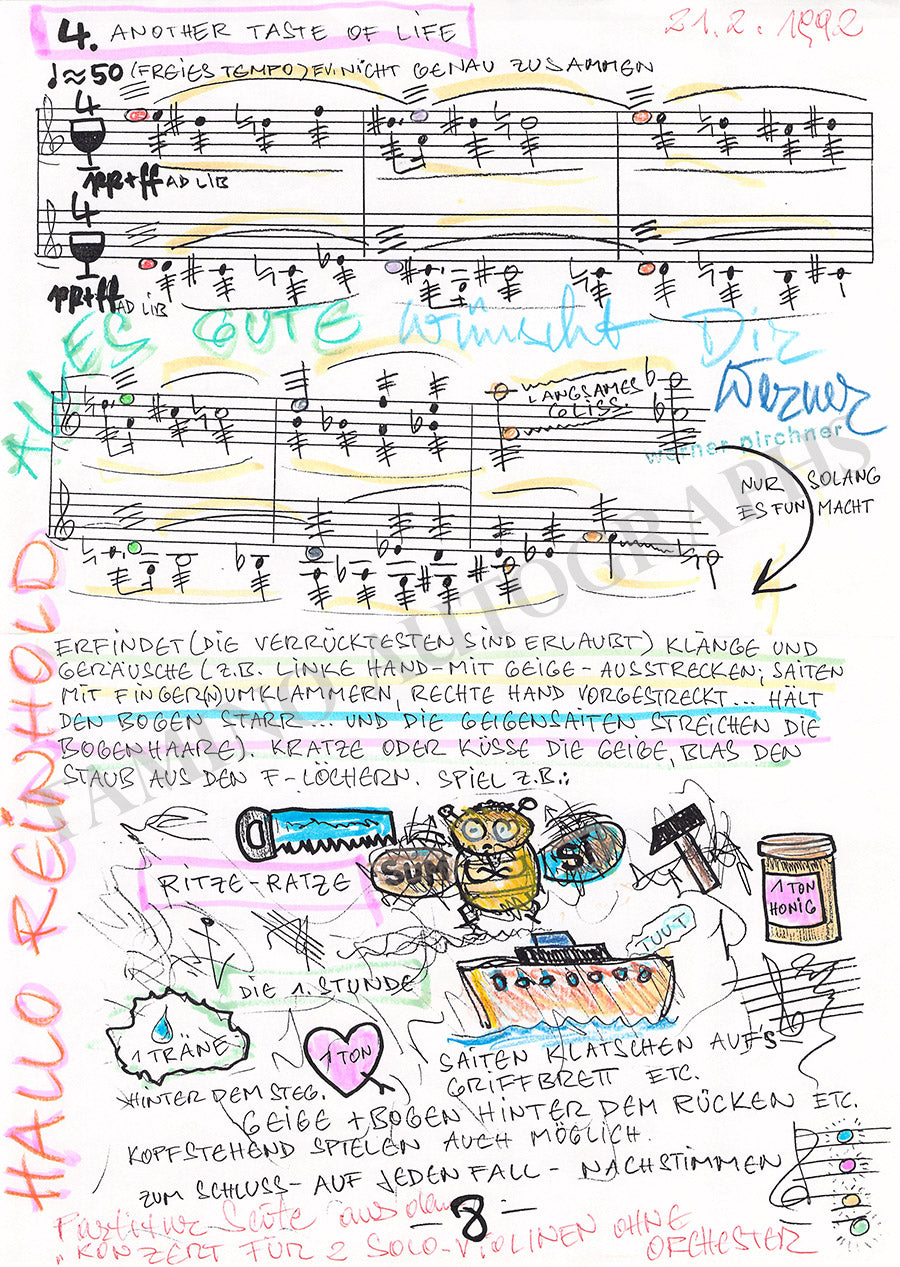 4. ANOTHER TASTE OF LIFE
21.2.1992
♩≈50 (FREIES TEMPO) EV. NICHT GENAU ZUSAMMEN
4
pp+ff AD LIB
4
pp+ff AD LIB
ALLES GUTE wünscht Dir
Werner
werner pirchner
LANGSAMES
GLISS.
NUR SOLANG
ES FUN MACHT
HALLO REINHOLD
TAMINO AUTOGRAPHS
ERFINDET (DIE VERRÜCKTESTEN SIND ERLAUBT) KLÄNGE UND
GERÄUSCHE (Z.B. LINKE HAND-MIT GEIGE-AUSSTRECKEN; SAITEN
MIT FINGER(N) UMKLAMMERN, RECHTE HAND VORGESTRECKT... HÄLT
DEN BOGEN STARR... UND DIE GEIGENSAITEN STREICHEN DIE
BOGENHAARE). KRATZE ODER KÜSSE DIE GEIGE, BLAS DEN
STAUB AUS DEN F-LÖCHERN. SPIEL Z.B.:
RITZE-RATZE
SUM
SI
1 TON
HONIG
TUU-T
DIE 1. STUNDE
1 TRÄNE
1 TON
SAITEN KLATSCHEN AUF'S
GRIFFBRETT ETC.
HINTER DEM STEG.
GEIGE + BOGEN HINTER DEM RÜCKEN ETC.
KOPFSTEHEND SPIELEN AUCH MÖGLICH.
ZUM SCHLUSS-AUF JEDEN FALL-NACHSTIMMEN
- 8 -
Partitur Seite aus dem
"KONZERT FÜR 2 SOLO-VIOLINEN OHNE
ORCHESTER